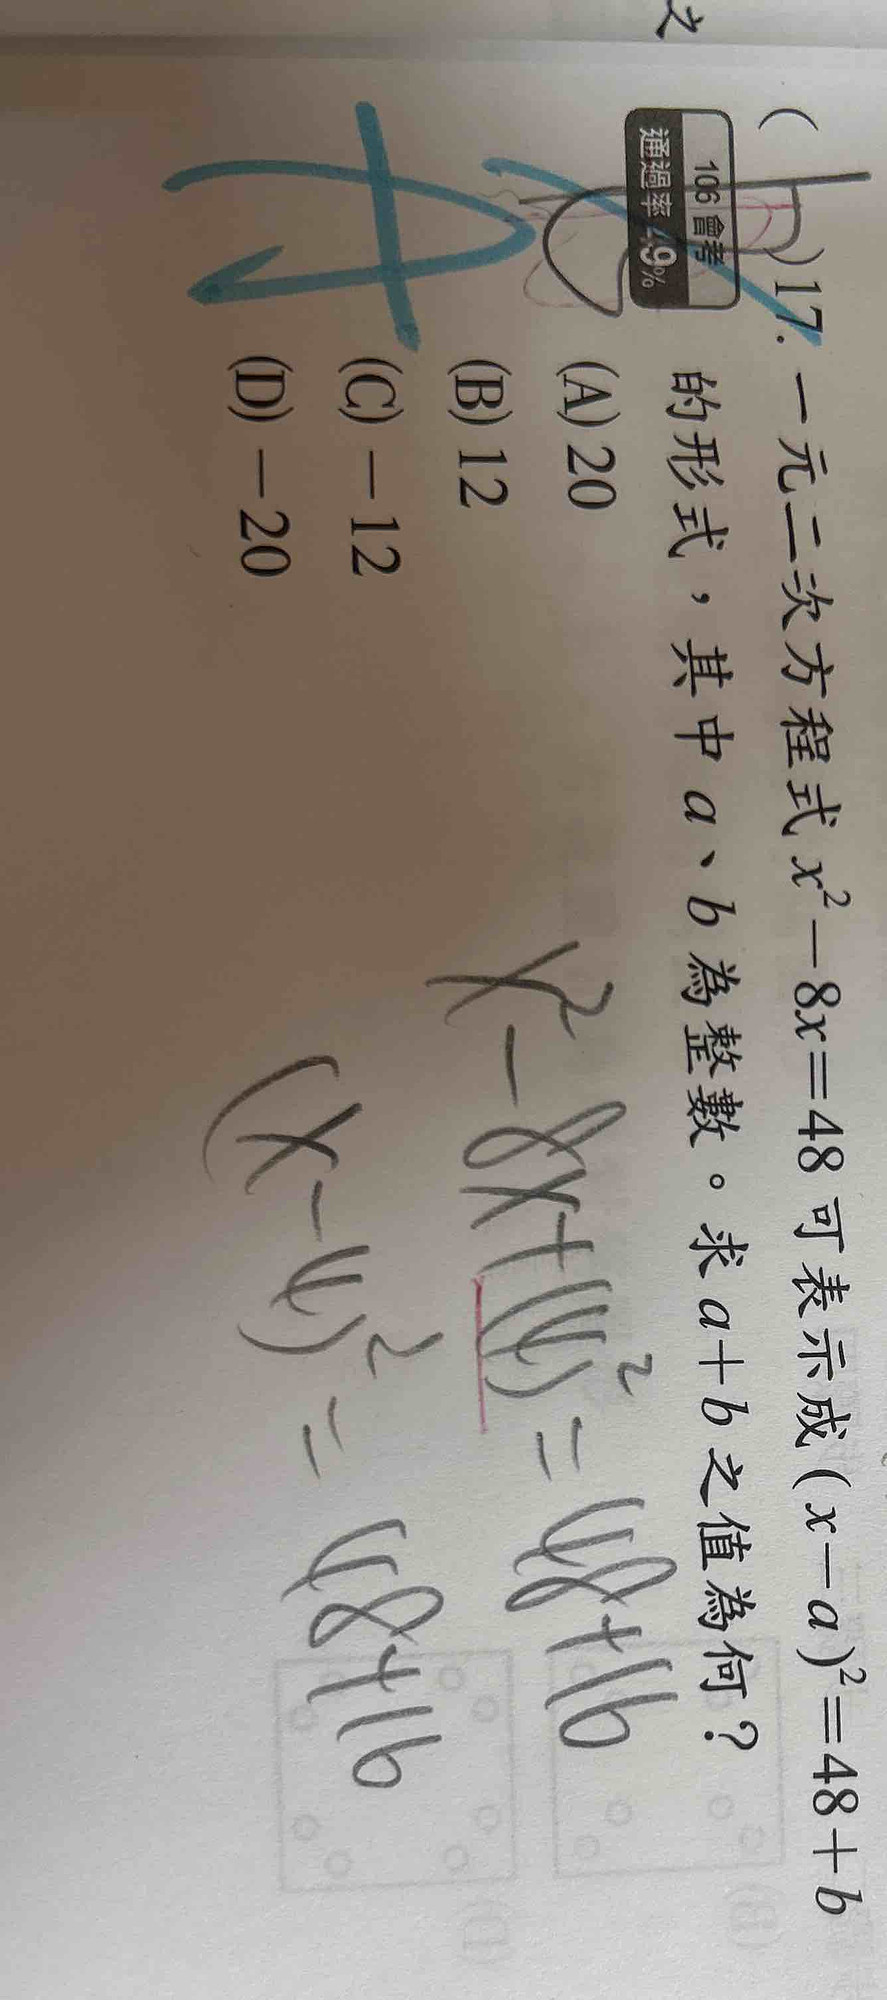 之
( )17. 一元二次方程式 x²－8x＝48 可表示成 (x－a)²＝48＋b
106 會考
通過率 49%
的形式，其中 a、b 為整數。求 a＋b 之值為何？
(A) 20
(B) 12
(C) －12
(D) －20
x²－8x＋(4)²＝48＋16
(x－4)²＝48＋16
A